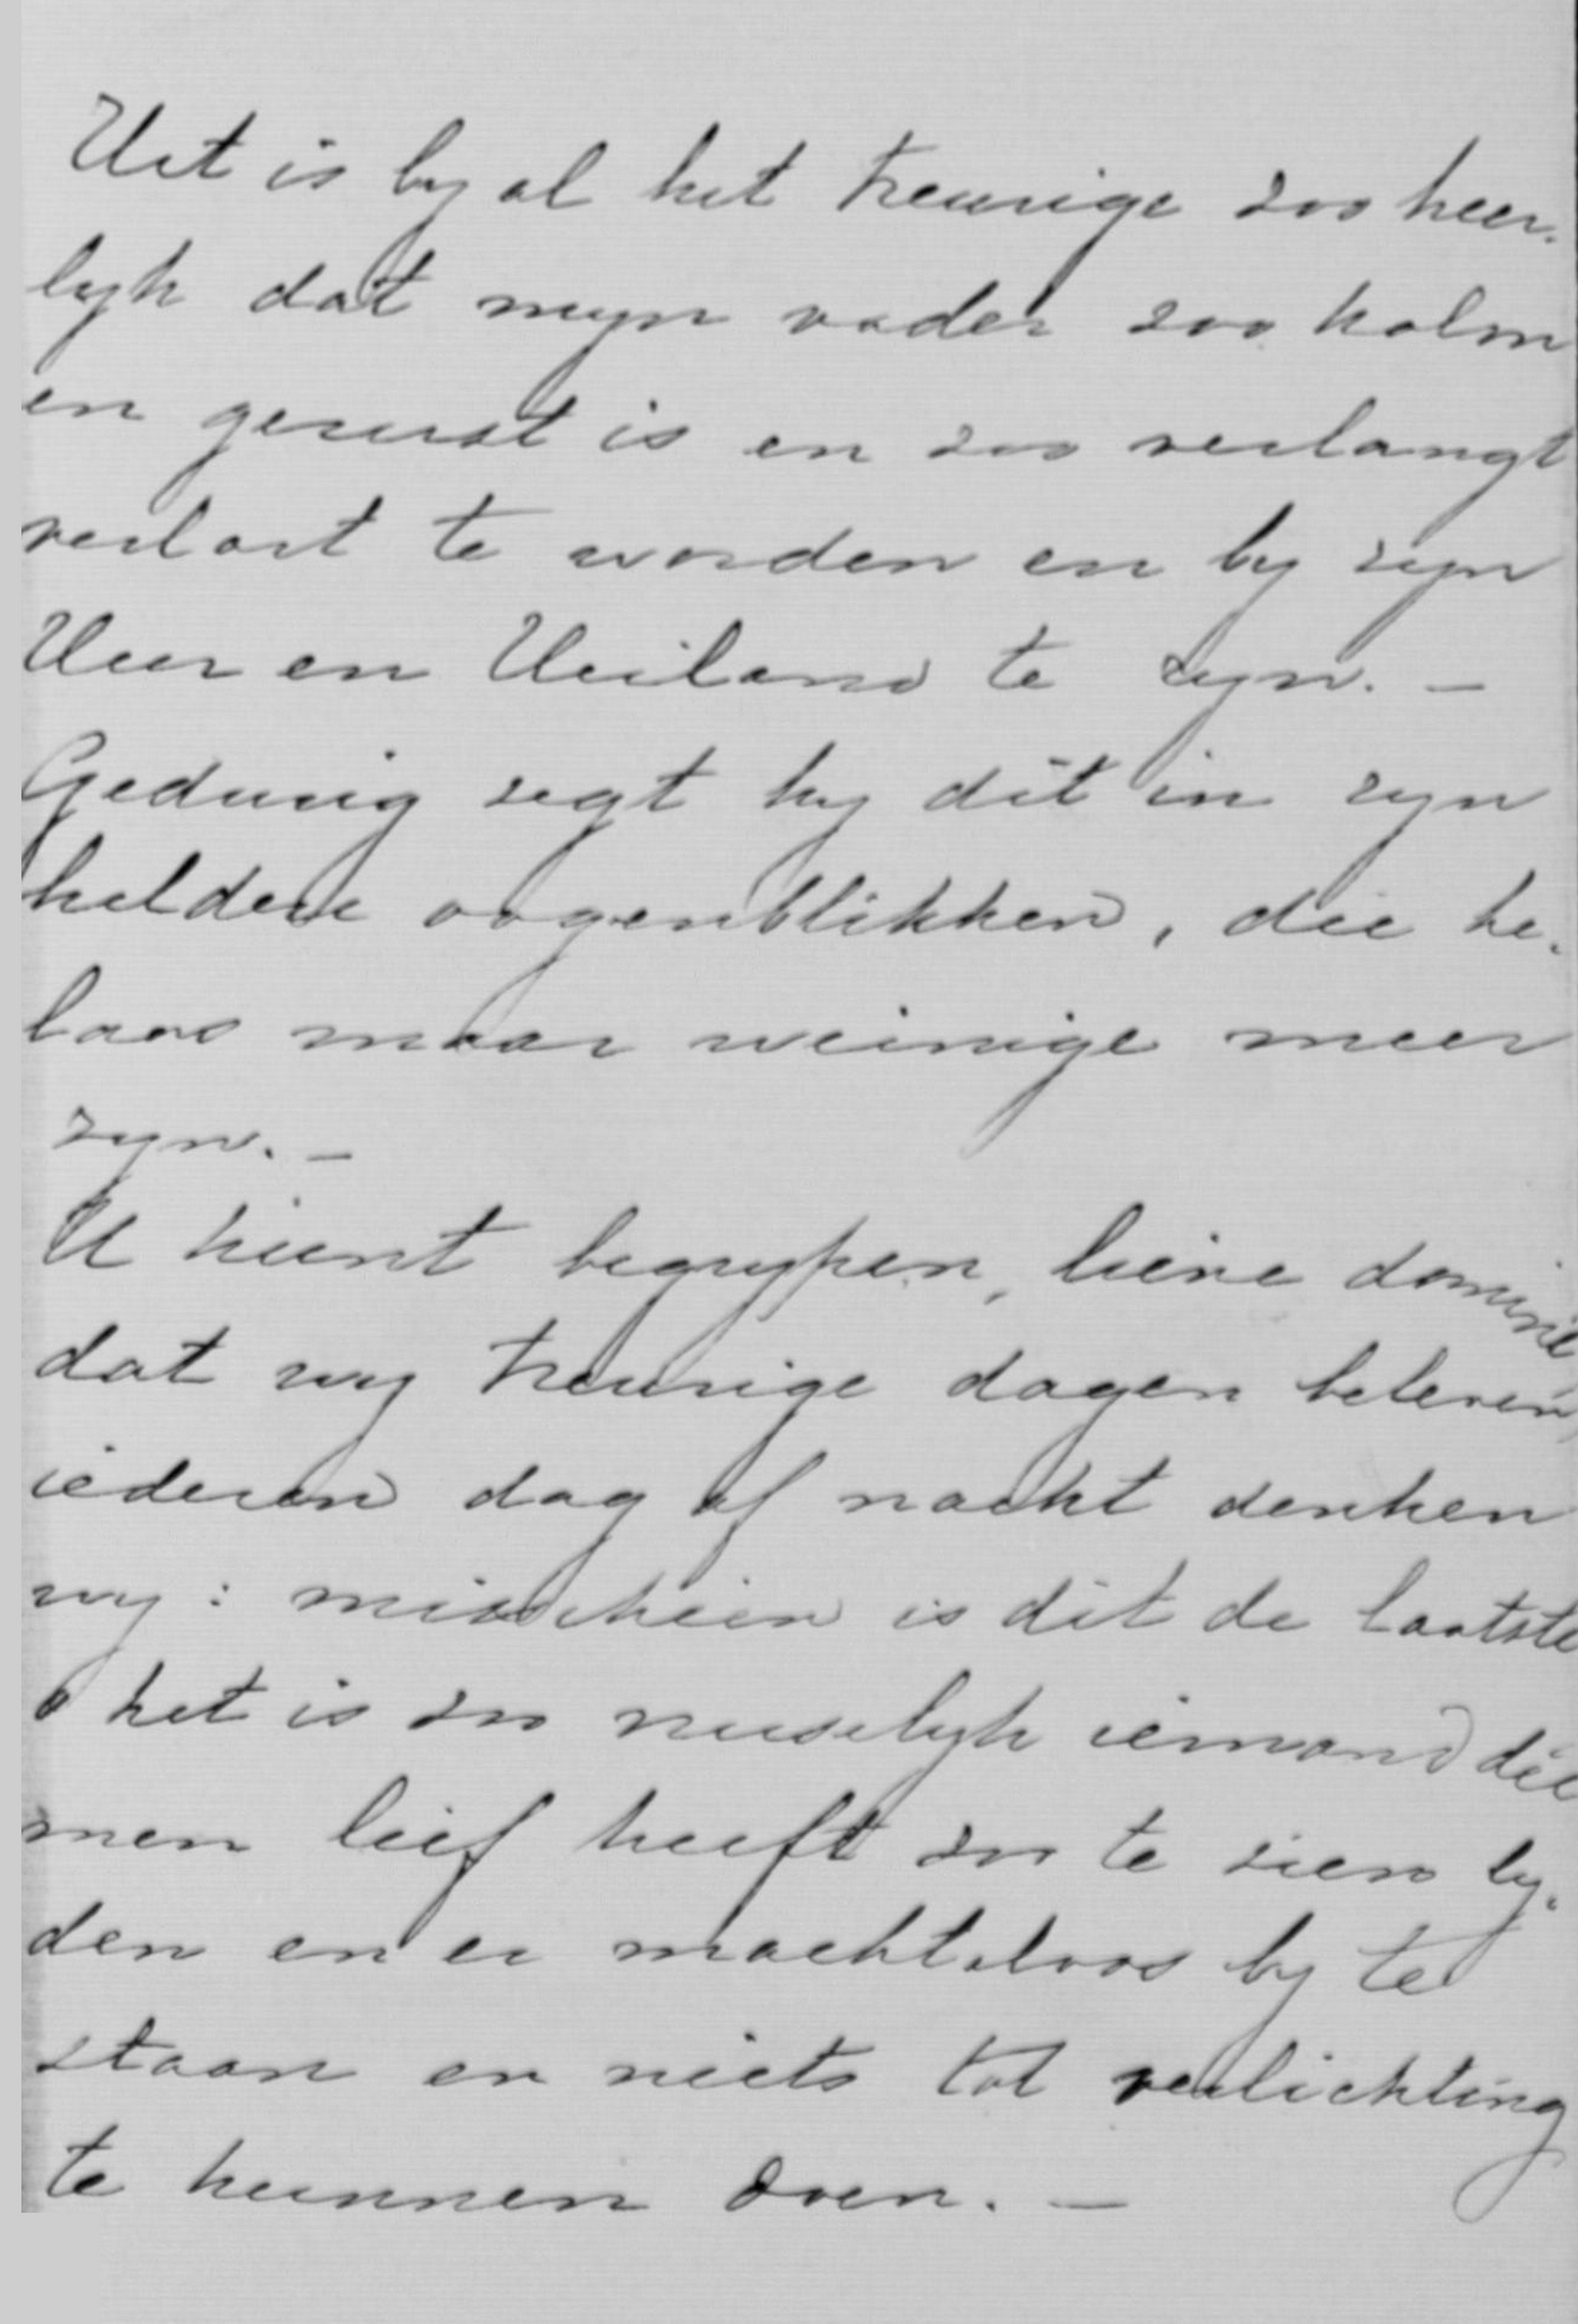 Het is by al het treurige zoo heer-
lyk dat myn vader zoo kalm
en gerust is en zoo verlangt
verlost te worden en by zyn
Heer en Heiland te zyn. —
Gedurig zegt hy dit in zyn
heldere oogenblikken, die he-
laas maar weinige meer
zyn. —
U kunt begrypen, lieve dominé
dat wy treurige dagen beleven,
iederen dag of nacht denken
wy: misschien is dit de laatste
o het is zoo vreeselyk iemand die
men lief heeft zoo te zien ly-
den en er machteloos by te
staan en niets tot verlichting
te kunnen doen. —